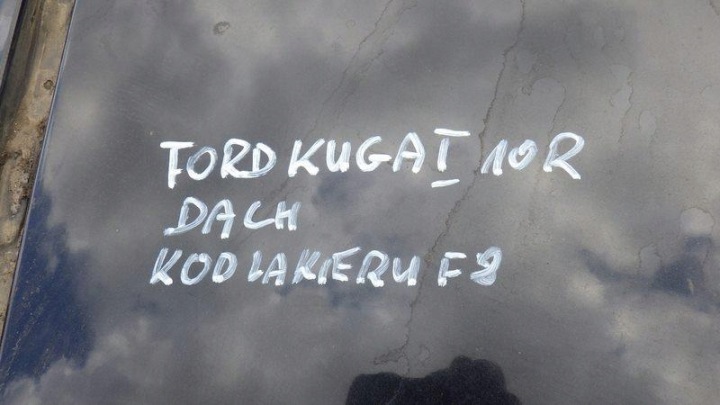 FORD KUGA I 10R
DACH
KOD LAKIERU F8